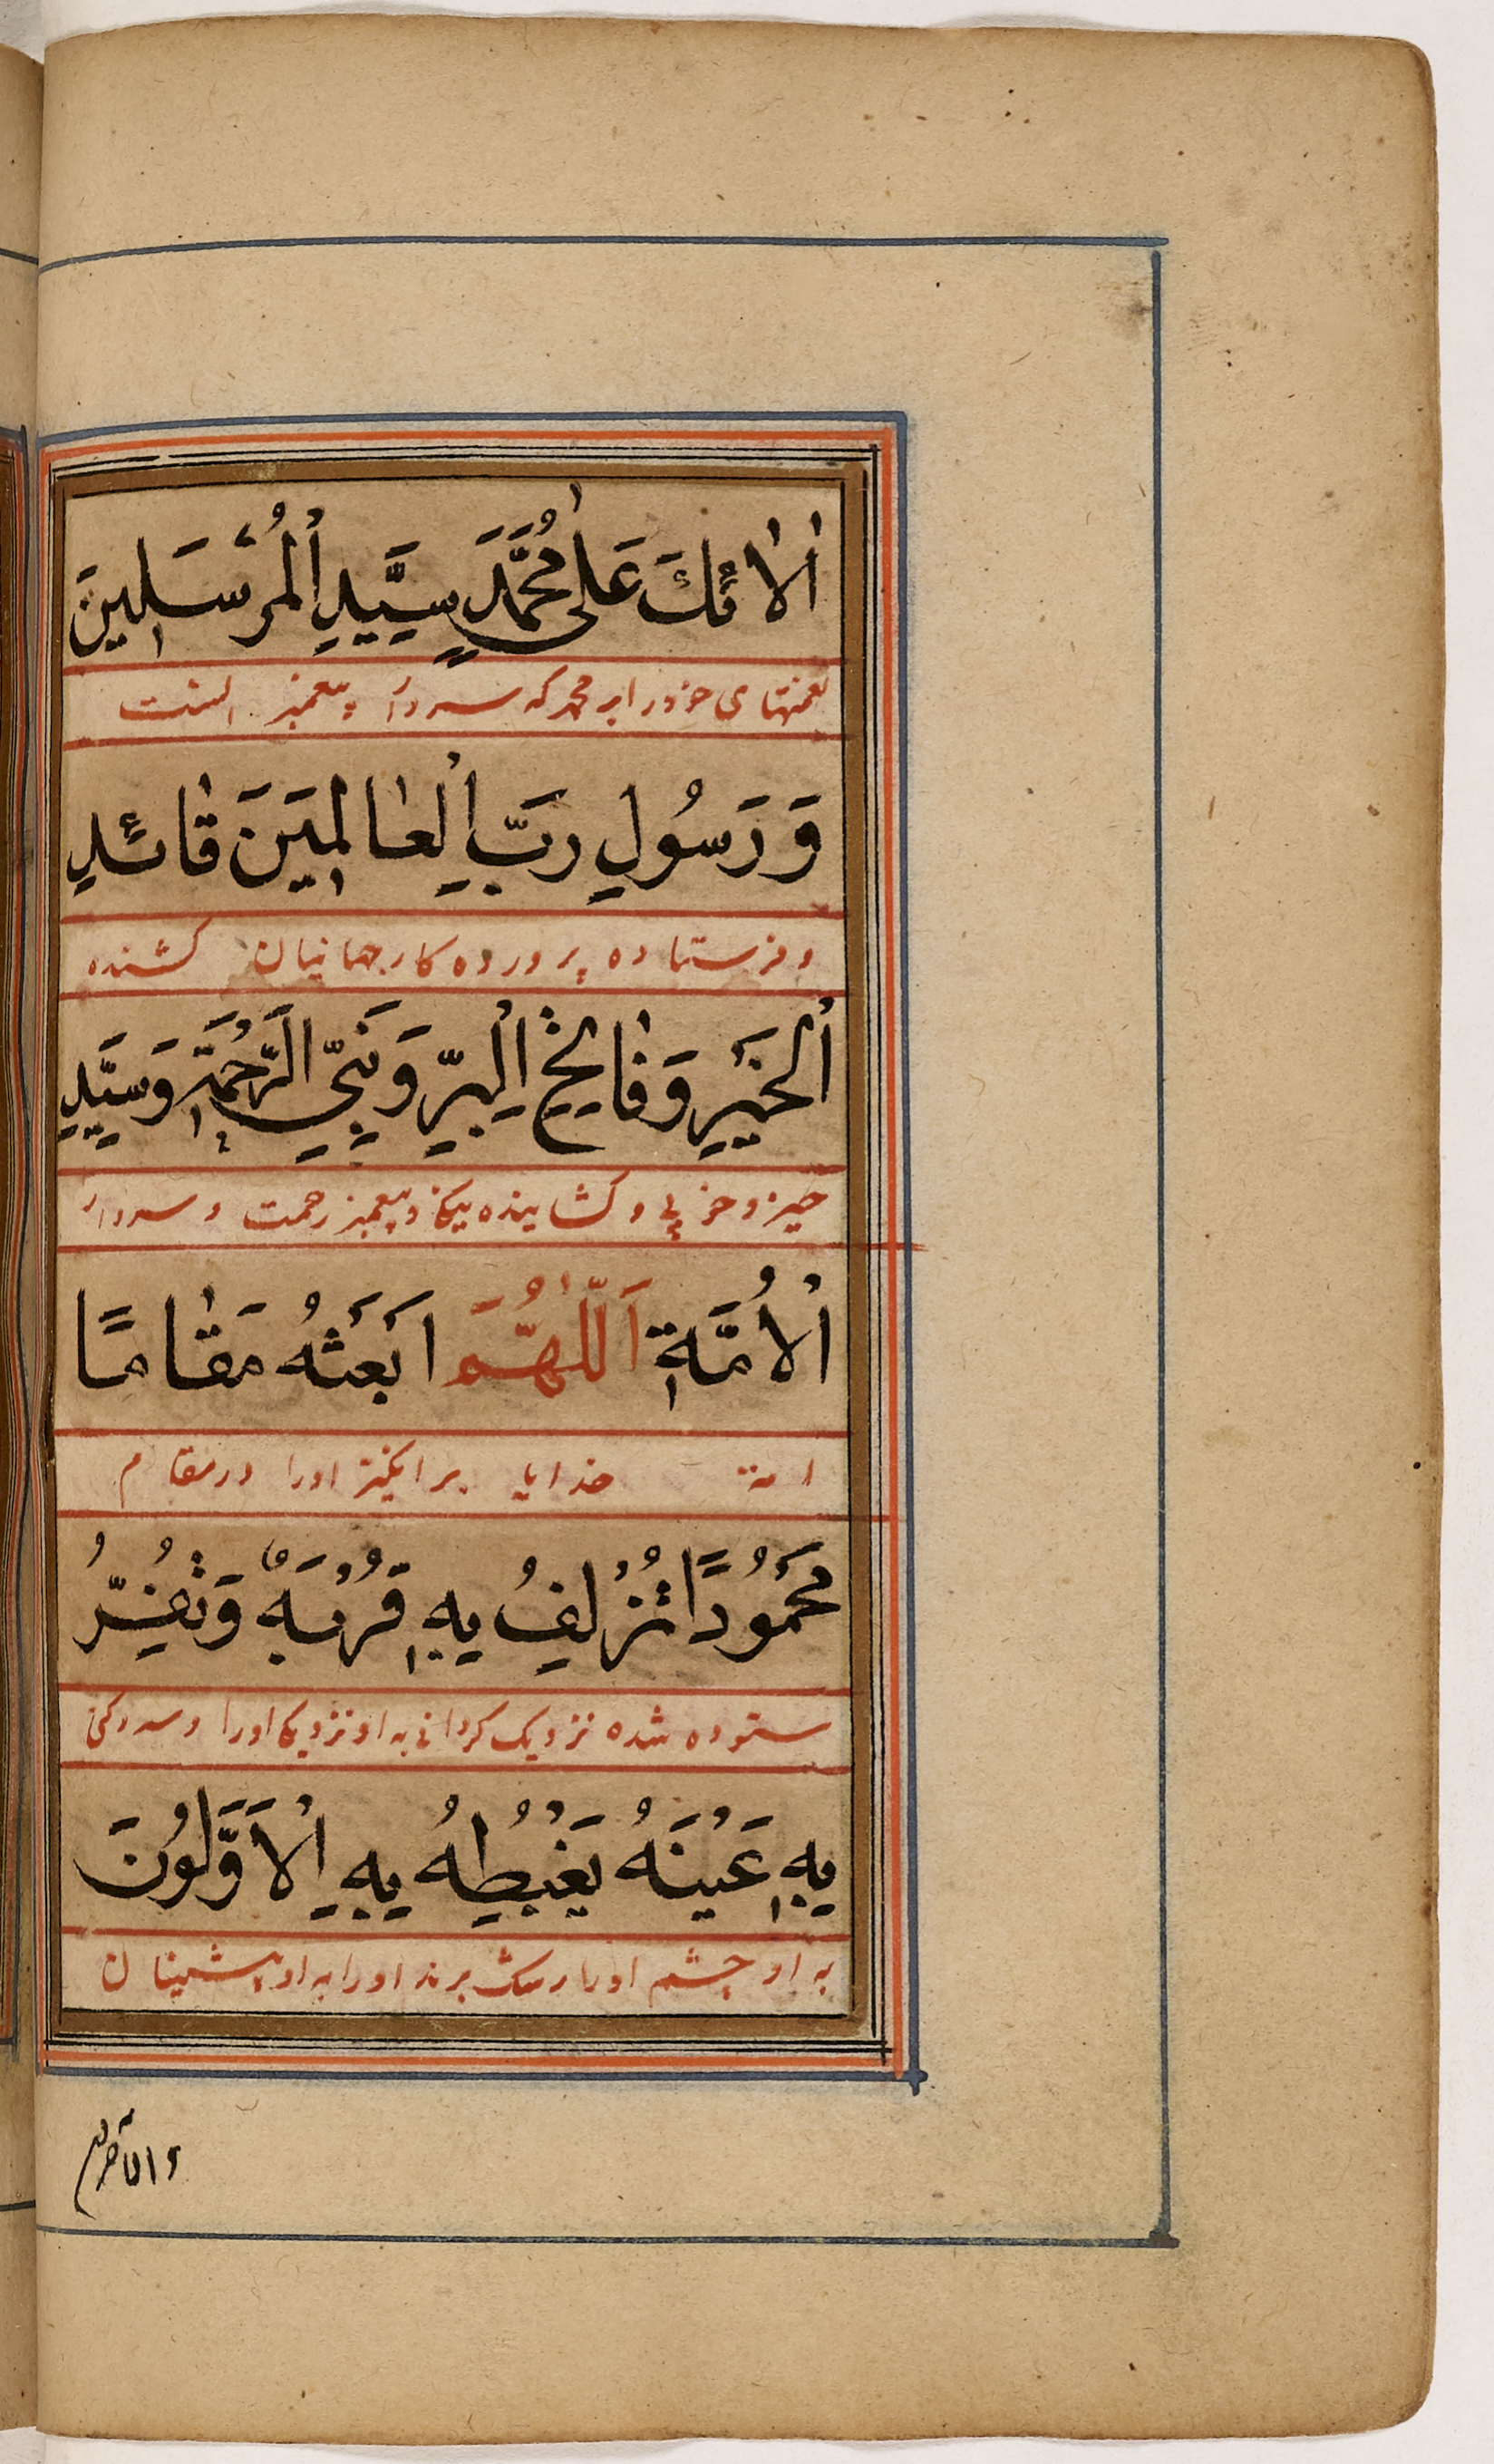 اٰلَائِكَ عَلٰى مُحَمَّدٍ سَيِّدِ الْمُرْسَلِينَ
نعمتهای خود را بر محمد که سردار پیغمبر انست
وَرَسُولِ رَبِّ الْعٰالَمِينَ قٰائِدِ
و فرستاده پرورده کار جهانیان کشنده
الْخَيْرِ وَفٰاتِحِ الْبِرِّ وَنَبِيِّ الرَّحْمَةِ وَسَيِّدِ
خیر و خوبی و کشاینده نیکی و پیغمبر رحمت و سردار
الْاُمَّةِ اَللّٰهُمَّ ابْعَثْهُ مَقٰامًا
امة خدایا بر انکیز اورا در مقام
مَحْمُودًا تُزْلِفُ بِهِ قُرْبَهُ وَتُقِرُّ
ستوده شده نزدیک کردانی به او نزدیکی اورا و سرد کنی
بِهِ عَيْنَهُ يَغْبِطُهُ بِهِ الْاَوَّلُونَ
به او چشم اورا رشک برند اورا به او پیشینان
والآخرون